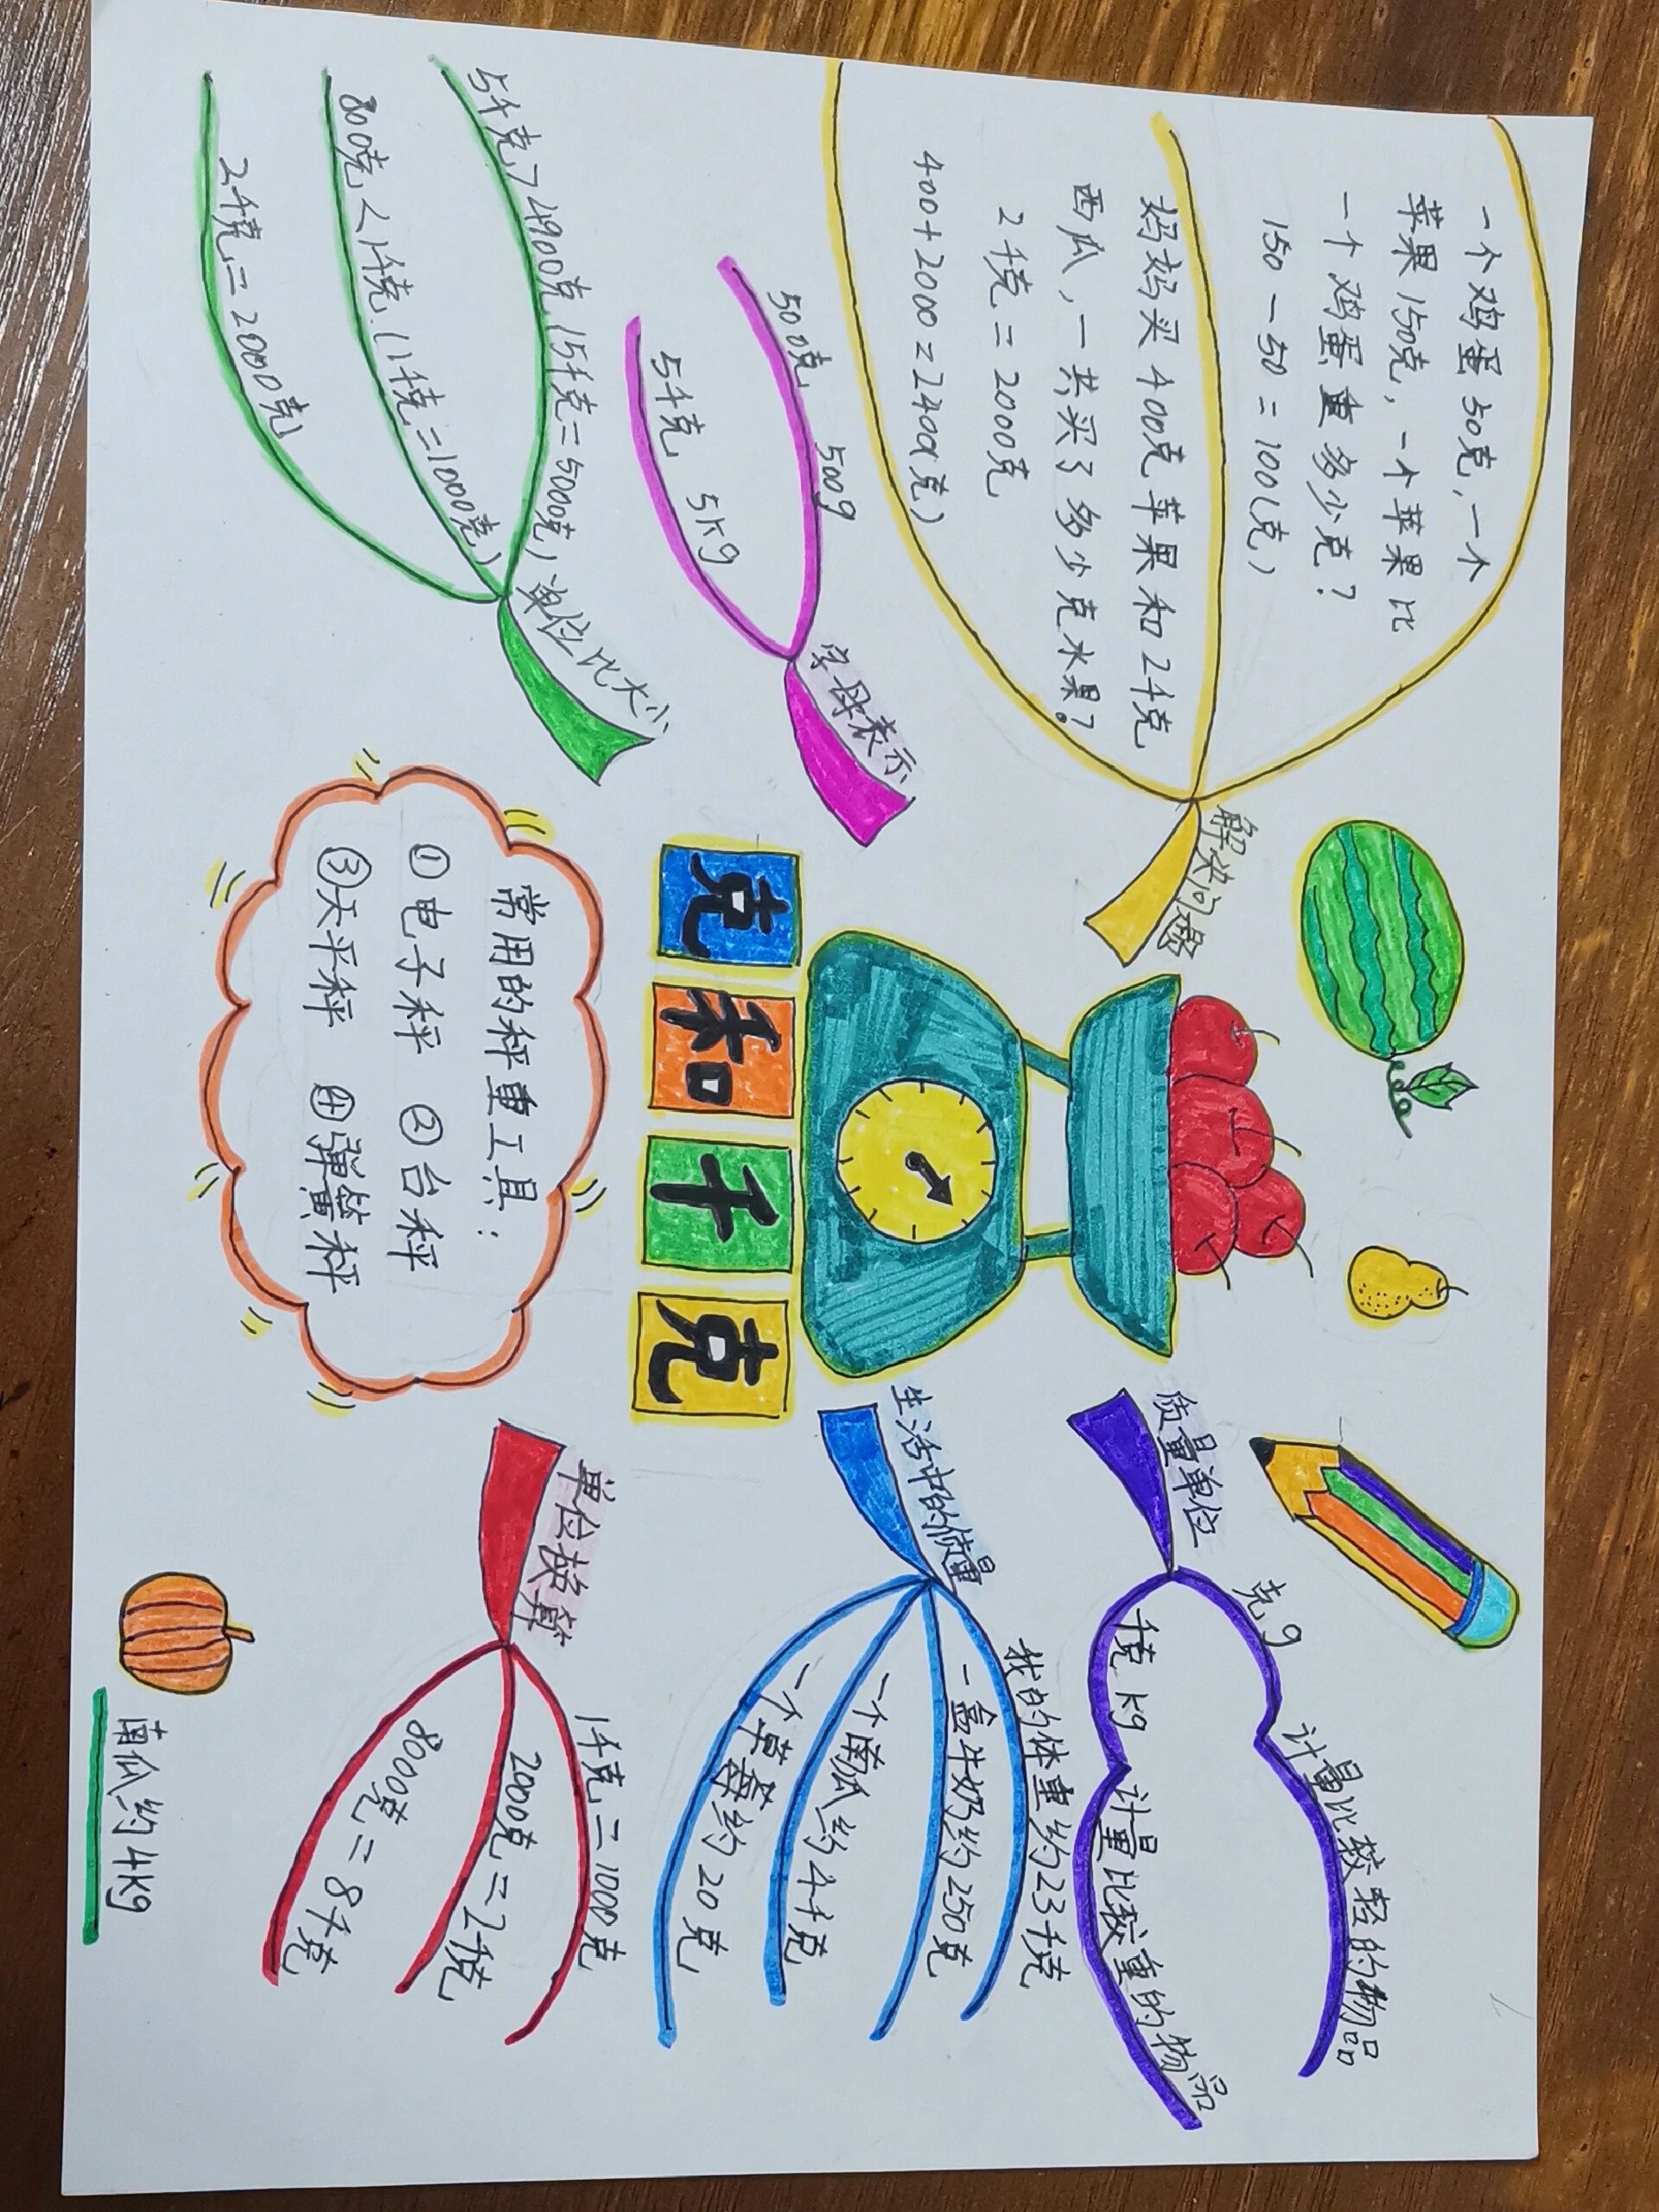 一个鸡蛋50克,一个
苹果150克,一个苹果比
一个鸡蛋重多少克?
150-50=100(克)
妈妈买400克苹果和2千克
西瓜,一共买了多少克水果?
2千克=2000克
400+2000=2400(克)
解决问题
500克 500g
5千克 5kg
字母表示
5千克>4900克(5千克=5000克)
800克<1千克(1千克=1000克)
2千克=2000克
单位比大小
克和千克
常用的秤重工具:
①电子秤 ②台秤
③天平秤 ④弹簧秤
质量单位
克 g 计量比较轻的物品
千克 kg 计量比较重的物品
生活中的质量
我的体重约23千克
一盒牛奶约250克
一个南瓜约4千克
一个草莓约20克
单位换算
1千克=1000克
2000克=2千克
8000克=8千克
南瓜约4kg